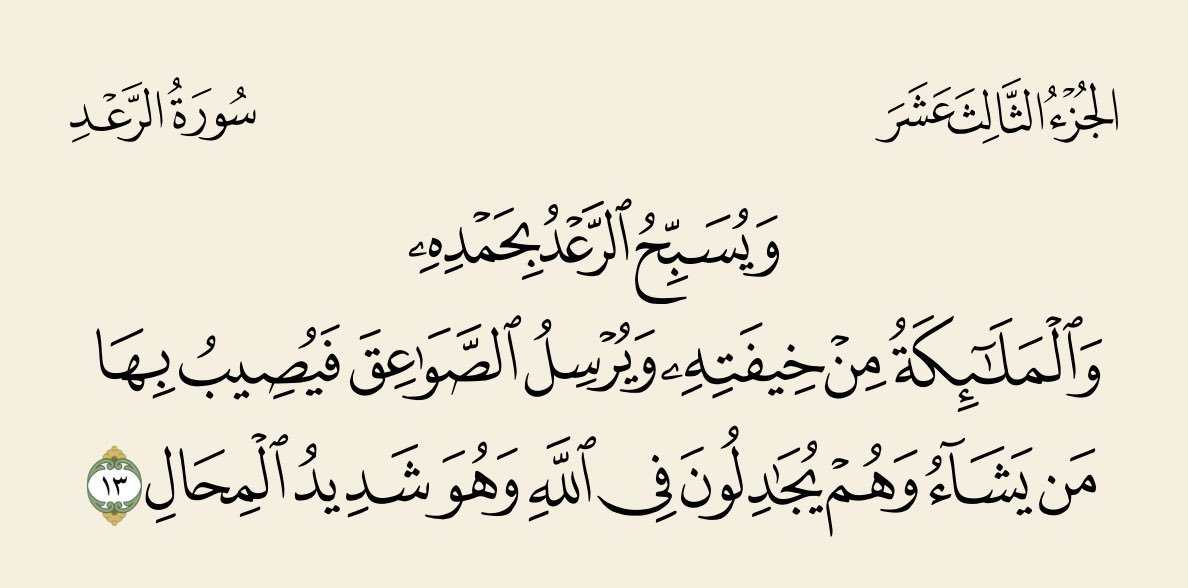 الجُزْءُ الثَّالِثَ عَشَرَ
سُورَةُ الرَّعْدِ
وَيُسَبِّحُ ٱلرَّعْدُ بِحَمْدِهِۦ
وَٱلْمَلَـٰٓئِكَةُ مِنْ خِيفَتِهِۦ وَيُرْسِلُ ٱلصَّوَٰعِقَ فَيُصِيبُ بِهَا
مَن يَشَآءُ وَهُمْ يُجَـٰدِلُونَ فِى ٱللَّهِ وَهُوَ شَدِيدُ ٱلْمِحَالِ ١٣